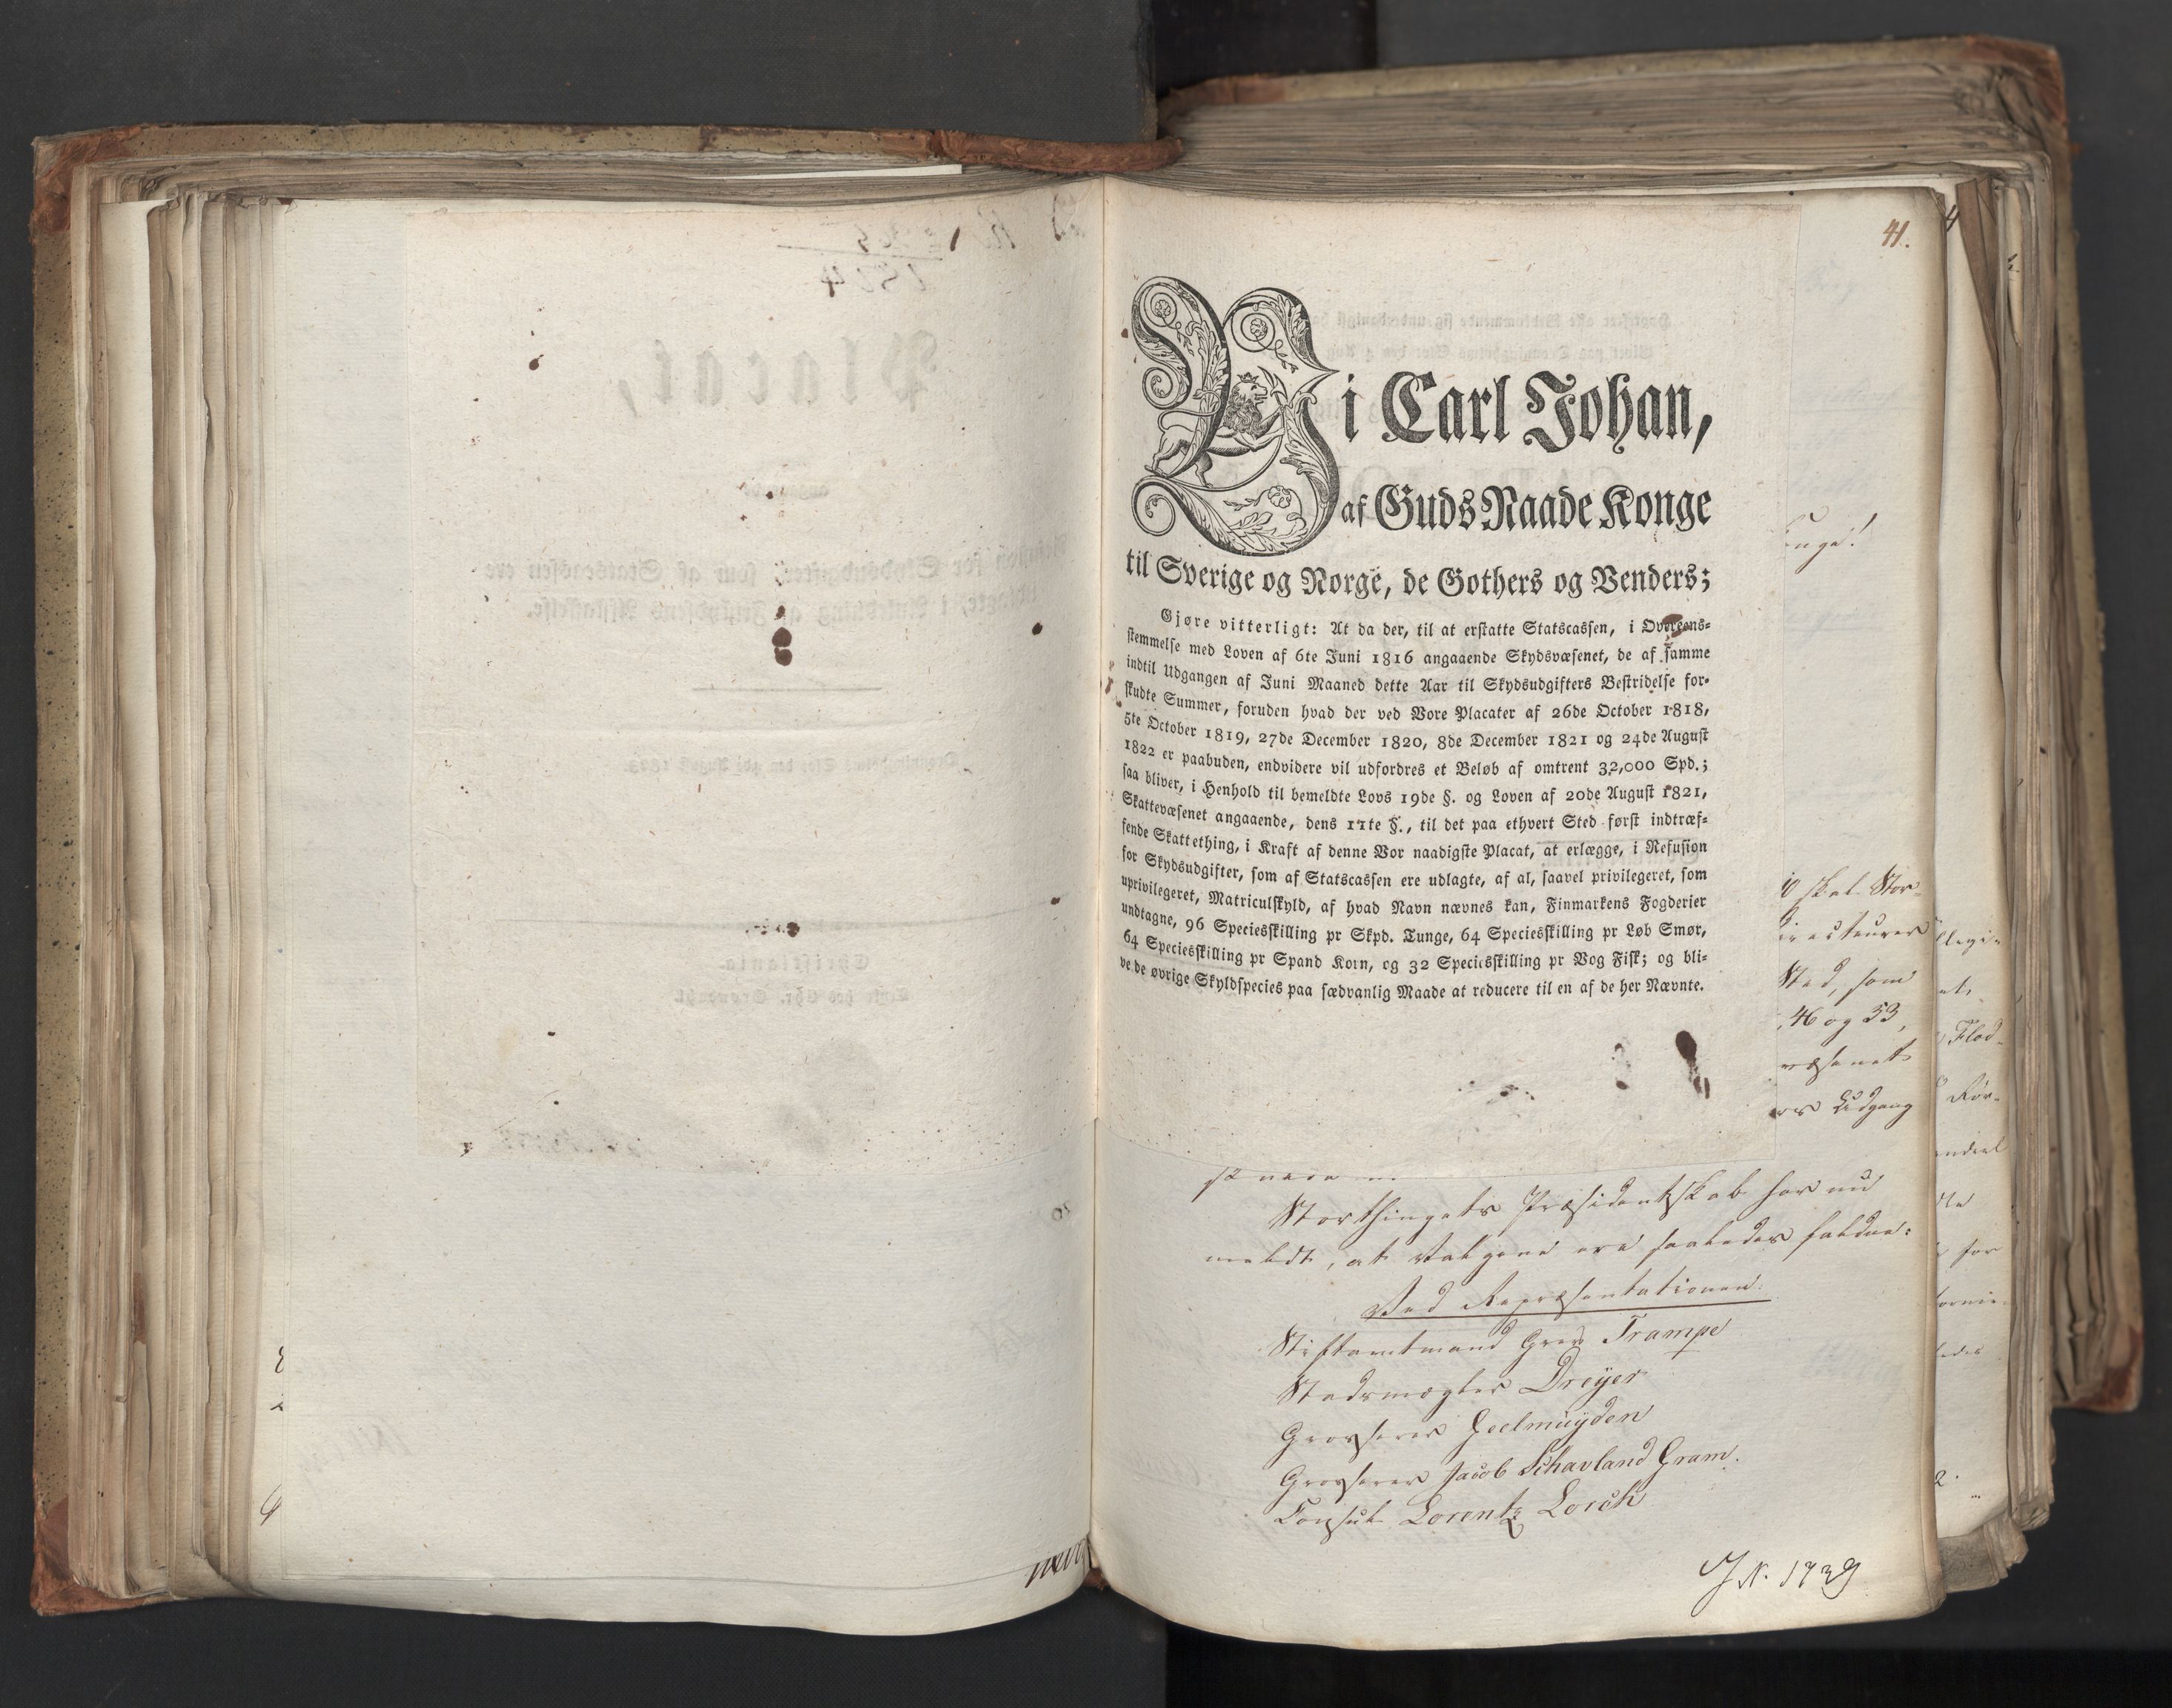 41.
Vi Carl Johan,
af Guds Naade Konge
til Sverige og Norge, de Gothers og Venders;
Gjøre vitterligt: At da der, til at erstatte Statscassen, i Overeens-
stemmelse med Loven af 6te Juni 1816 angaaende Skydsvæsenet, de af samme
indtil Udgangen af Juni Maaned dette Aar til Skydsudgifters Bestridelse for-
skudte Summer, foruden hvad der ved Vore Placater af 26de October 1818,
5te October 1819, 27de December 1820, 8de December 1821 og 24de August
1822 er paabuden, endvidere vil udfordres et Beløb af omtrent 32,000 Spd.;
saa bliver, i Henhold til bemeldte Lovs 19de §. og Loven af 20de August 1821,
Skattevæsenet angaaende, dens 11te §., til det paa ethvert Sted først indtræf-
fende Skattething, i Kraft af denne Vor naadigste Placat, at erlægge, i Refusion
for Skydsudgifter, som af Statscassen ere udlagte, af al, saavel privilegeret, som
uprivilegeret, Matriculskyld, af hvad Navn nævnes kan, Finmarkens Fogderier
undtagne, 96 Speciesskilling pr Skpd. Tunge, 64 Speciesskilling pr Løb Smør,
64 Speciesskilling pr Spand Korn, og 32 Speciesskilling pr Vog Fisk; og bli-
ve de øvrige Skyldspecies paa sædvanlig Maade at reducere til en af de her Nævnte.
skal Stor-
Sted, som
46 og 33,
Udgang
Storthingets Præsidentskab har nu
meldt, at Valgene ere saaledes faldne:
Ved Repræsentationen:
Stiftamtmand Grev Trampe
Stadsmægler Dreyer
Grosserer Geelmuyden
Grosserer Jacob Schavland Gram.
Consul Lorentz Lorch
J.N. 1739